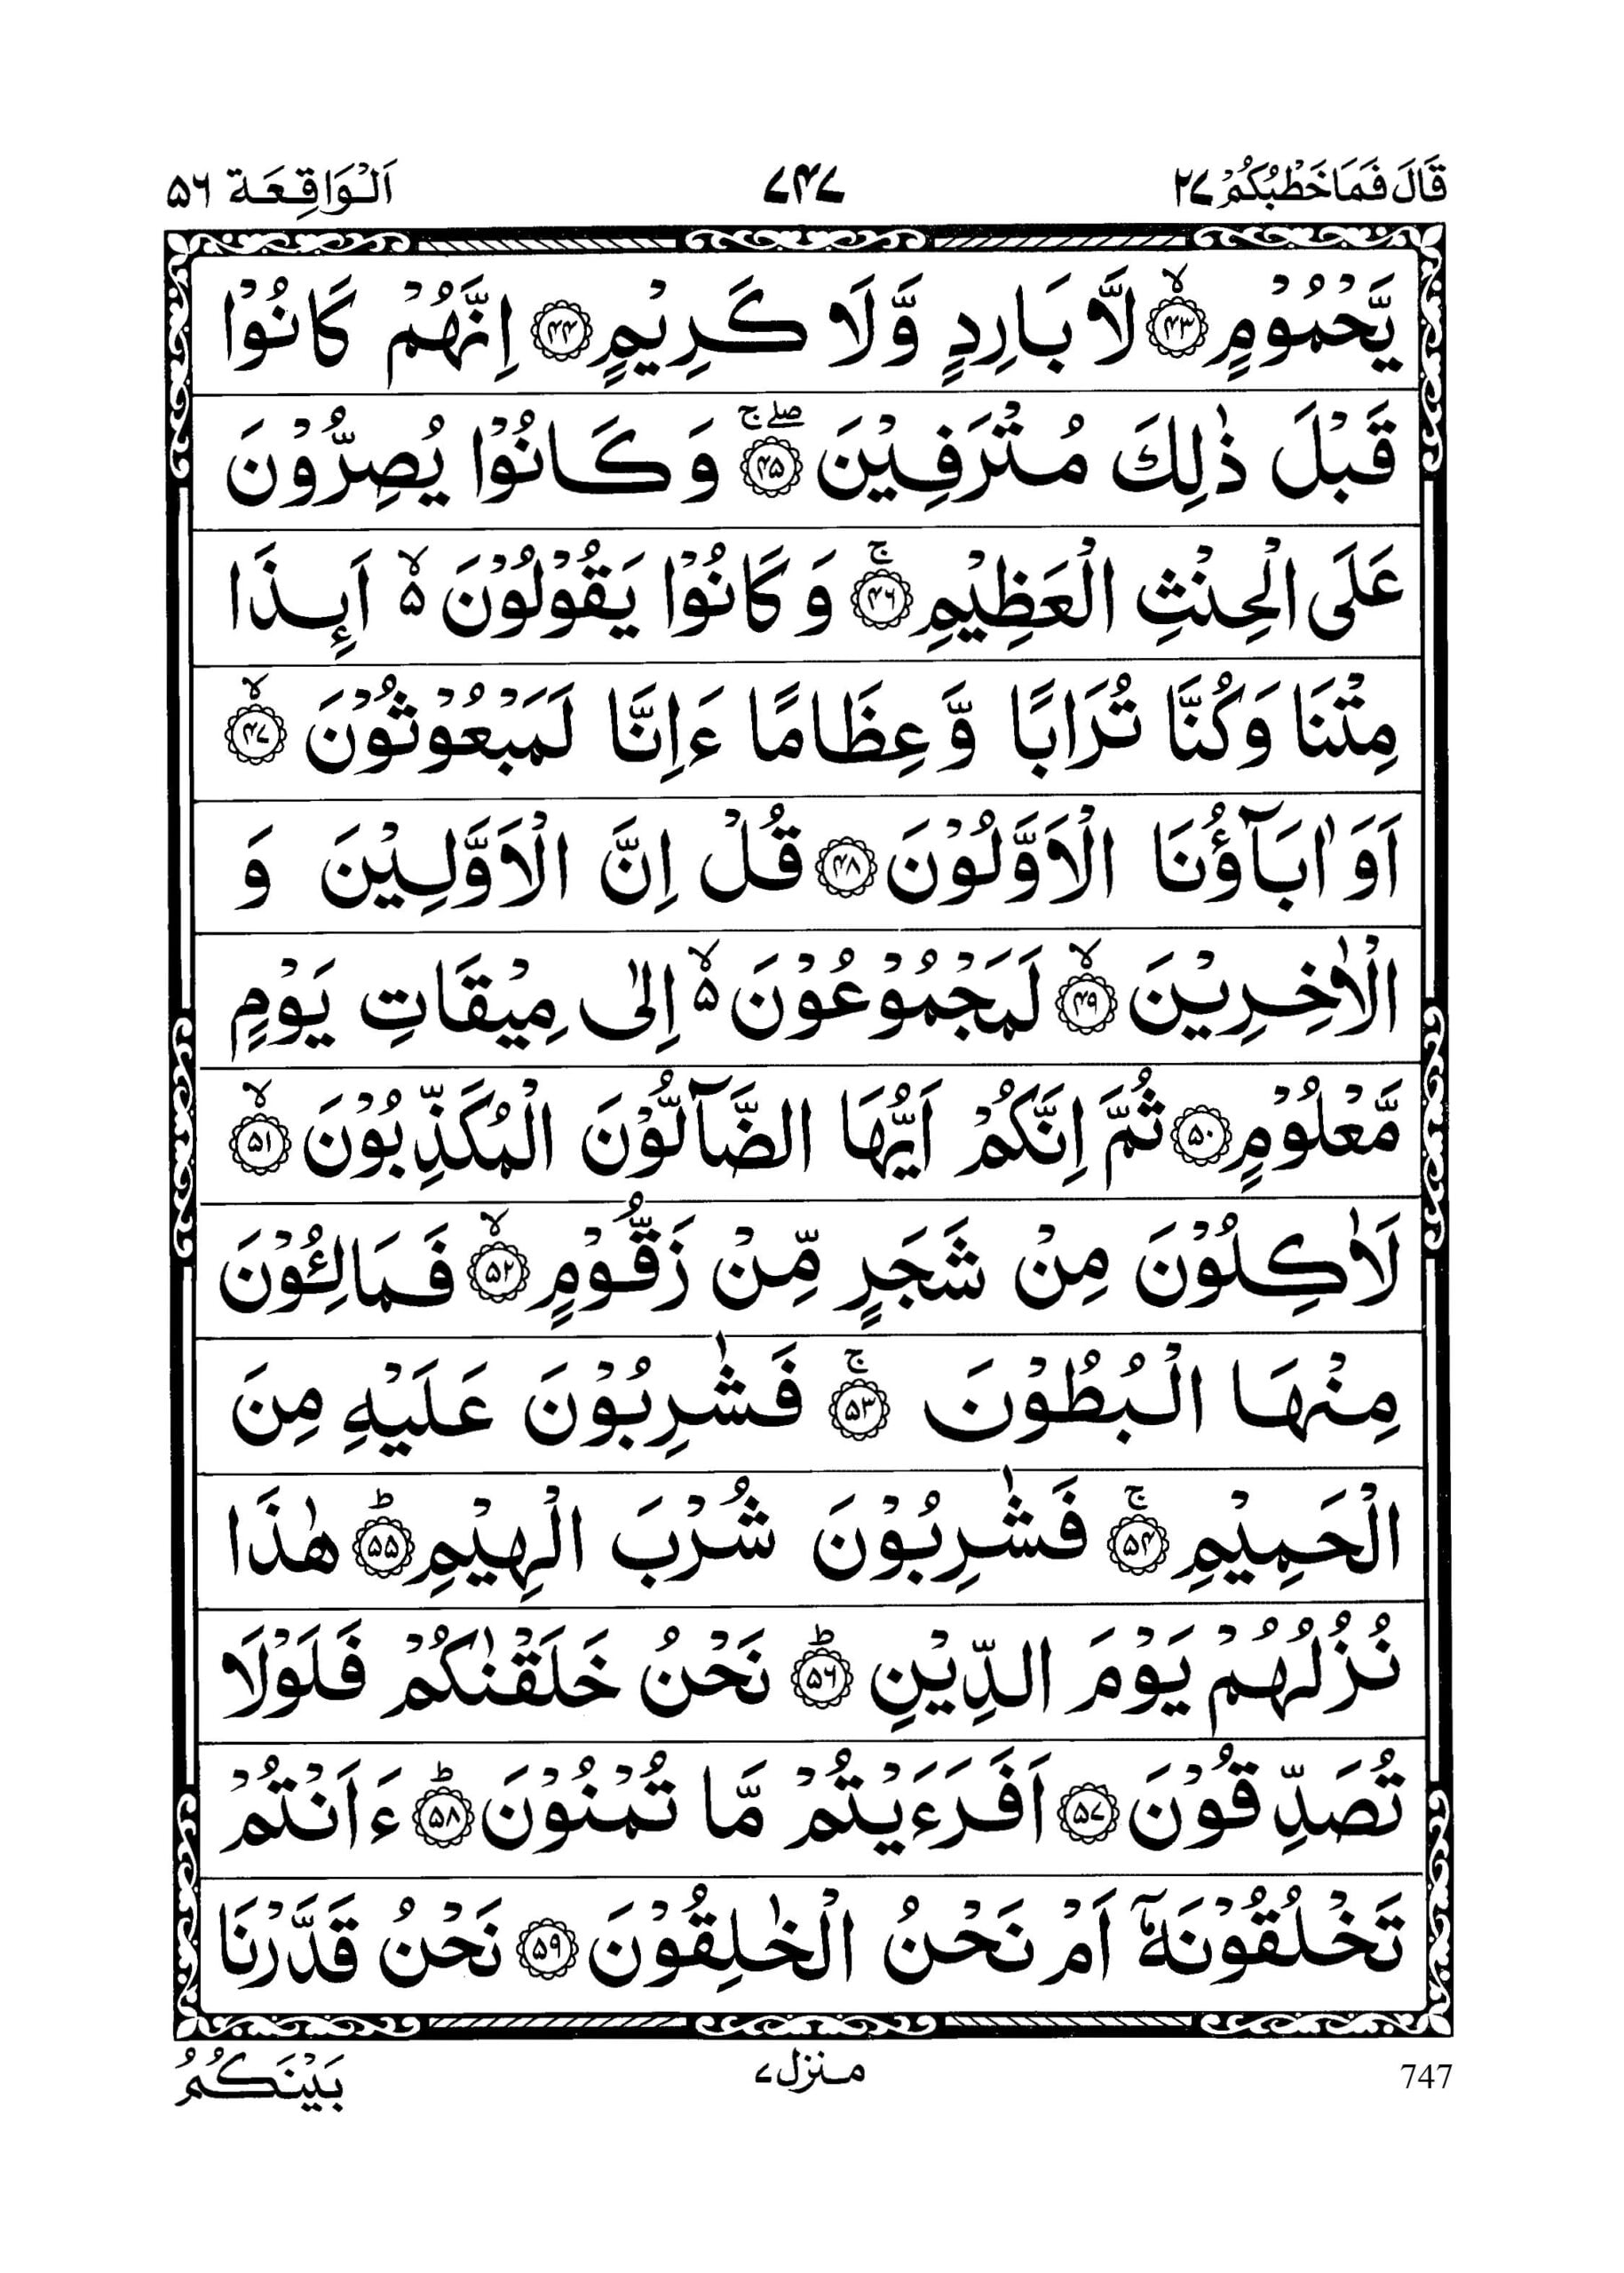 قَالَ فَمَا خَطْبُكُمْ ٢٧ ٧٤٧ اَلْوَاقِعَة ٥٦
يَّحْمُوْمٍ ۙ﴿۴۳﴾ لَّا بَارِدٍ وَّلَا كَرِيْمٍ ﴿۴۴﴾ اِنَّهُمْ كَانُوْا
قَبْلَ ذٰلِكَ مُتْرَفِيْنَ ۖۚ﴿۴۵﴾ وَ كَانُوْا يُصِرُّوْنَ
عَلَى الْحِنْثِ الْعَظِيْمِ ۚ﴿۴۶﴾ وَ كَانُوْا يَقُوْلُوْنَ ۵ۙ اَىِٕذَا
مِتْنَا وَ كُنَّا تُرَابًا وَّ عِظَامًا ءَاِنَّا لَمَبْعُوْثُوْنَ ۙ﴿۴۷﴾
اَوَ اٰبَآؤُنَا الْاَوَّلُوْنَ ﴿۴۸﴾ قُلْ اِنَّ الْاَوَّلِيْنَ وَ
الْاٰخِرِيْنَ ۙ﴿۴۹﴾ لَمَجْمُوْعُوْنَ ۵ۙ اِلٰى مِيْقَاتِ يَوْمٍ
مَّعْلُوْمٍ ﴿۵۰﴾ ثُمَّ اِنَّكُمْ اَيُّهَا الضَّآلُّوْنَ الْمُكَذِّبُوْنَ ۙ﴿۵۱﴾
لَاٰكِلُوْنَ مِنْ شَجَرٍ مِّنْ زَقُّوْمٍ ۙ﴿۵۲﴾ فَمَالِئُوْنَ
مِنْهَا الْبُطُوْنَ ۚ﴿۵۳﴾ فَشٰرِبُوْنَ عَلَيْهِ مِنَ
الْحَمِيْمِ ۚ﴿۵۴﴾ فَشٰرِبُوْنَ شُرْبَ الْهِيْمِ ؕ﴿۵۵﴾ هٰذَا
نُزُلُهُمْ يَوْمَ الدِّيْنِ ؕ﴿۵۶﴾ نَحْنُ خَلَقْنٰكُمْ فَلَوْلَا
تُصَدِّقُوْنَ ﴿۵۷﴾ اَفَرَءَيْتُمْ مَّا تُمْنُوْنَ ؕ﴿۵۸﴾ ءَاَنْتُمْ
تَخْلُقُوْنَهٗۤ اَمْ نَحْنُ الْخٰلِقُوْنَ ﴿۵۹﴾ نَحْنُ قَدَّرْنَا
747 منزل ٧ بَيْنَكُمُ